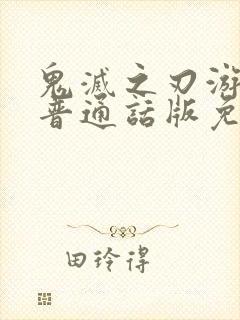 鬼滅之刃游
普通話版免
田玲得